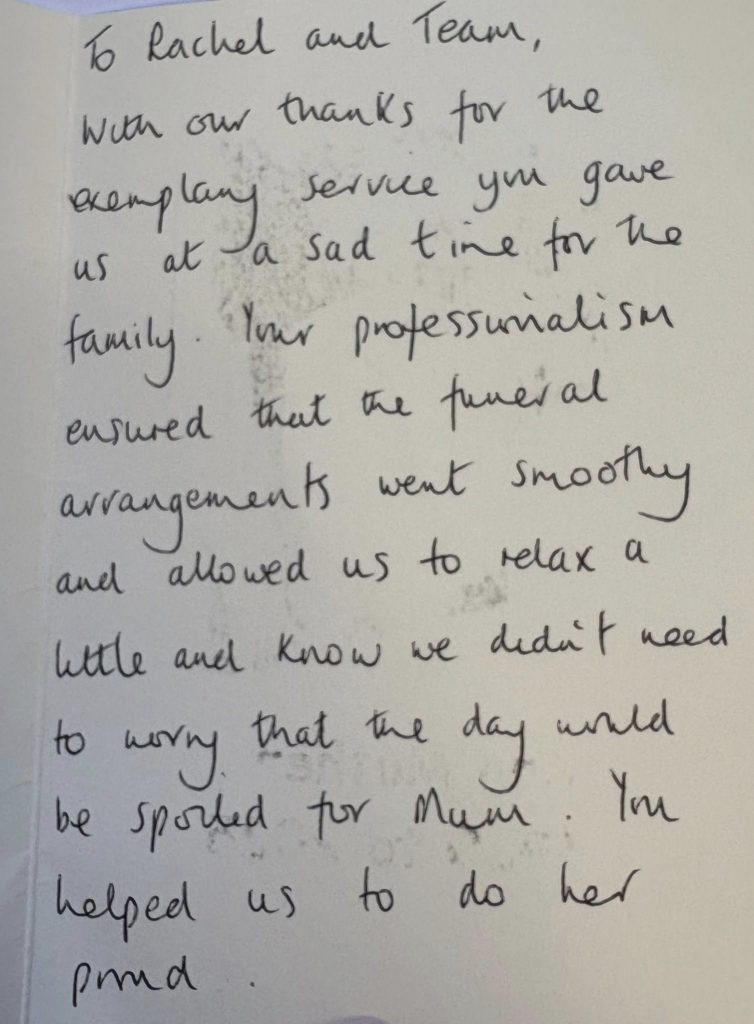 To Rachel and Team,
With our thanks for the
exemplary service you gave
us at a sad time for the
family. Your professionalism
ensured that the funeral
arrangements went smoothly
and allowed us to relax a
little and know we didn't need
to worry that the day would
be spoiled for Mum. You
helped us to do her
proud.